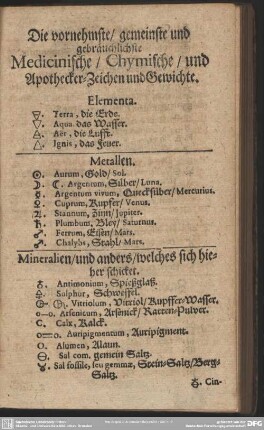 Die vornehmste/ gemeinste und
gebräuchlichste
Medicinische/ Chymische/ und
Apothecker-Zeichen und Gewichte.
Elementa.
🜃. Terra, die Erde.
🜄. Aqua. das Wasser.
🜁. Aër, die Lufft.
🜂. Ignis, das Feuer.
Metallen.
☉. Aurum, Gold/ Sol.
☽. ☾. Argentum, Silber/ Luna.
☿. Argentum vivum, Quecksilber/ Mercurius.
♀. Cuprum, Kupfer/ Venus.
♃. Stannum, Zinn/ Jupiter.
♄. Plumbum, Bley/ Saturnus.
♂. Ferrum, Eisen/ Mars.
♂. Chalybs, Stahl/ Mars.
Mineralien/ und anders/ welches sich hie-
her schicket.
♁. Antimonium, Spießglaß.
🜍. Sulphur, Schweffel.
Vitriolum, Vitriol/ Kupffer-Wasser.
o-o. Arsenicum, Arsenick/ Ratten-Pulver.
C. Calx, Kalck.
Auripigmentum, Auripigment.
O. Alumen, Alaun.
🜔. Sal com. gemein Saltz.
Sal fossile, seu gemmæ, Stein-Saltz/ Berg-
Saltz.
Cin-